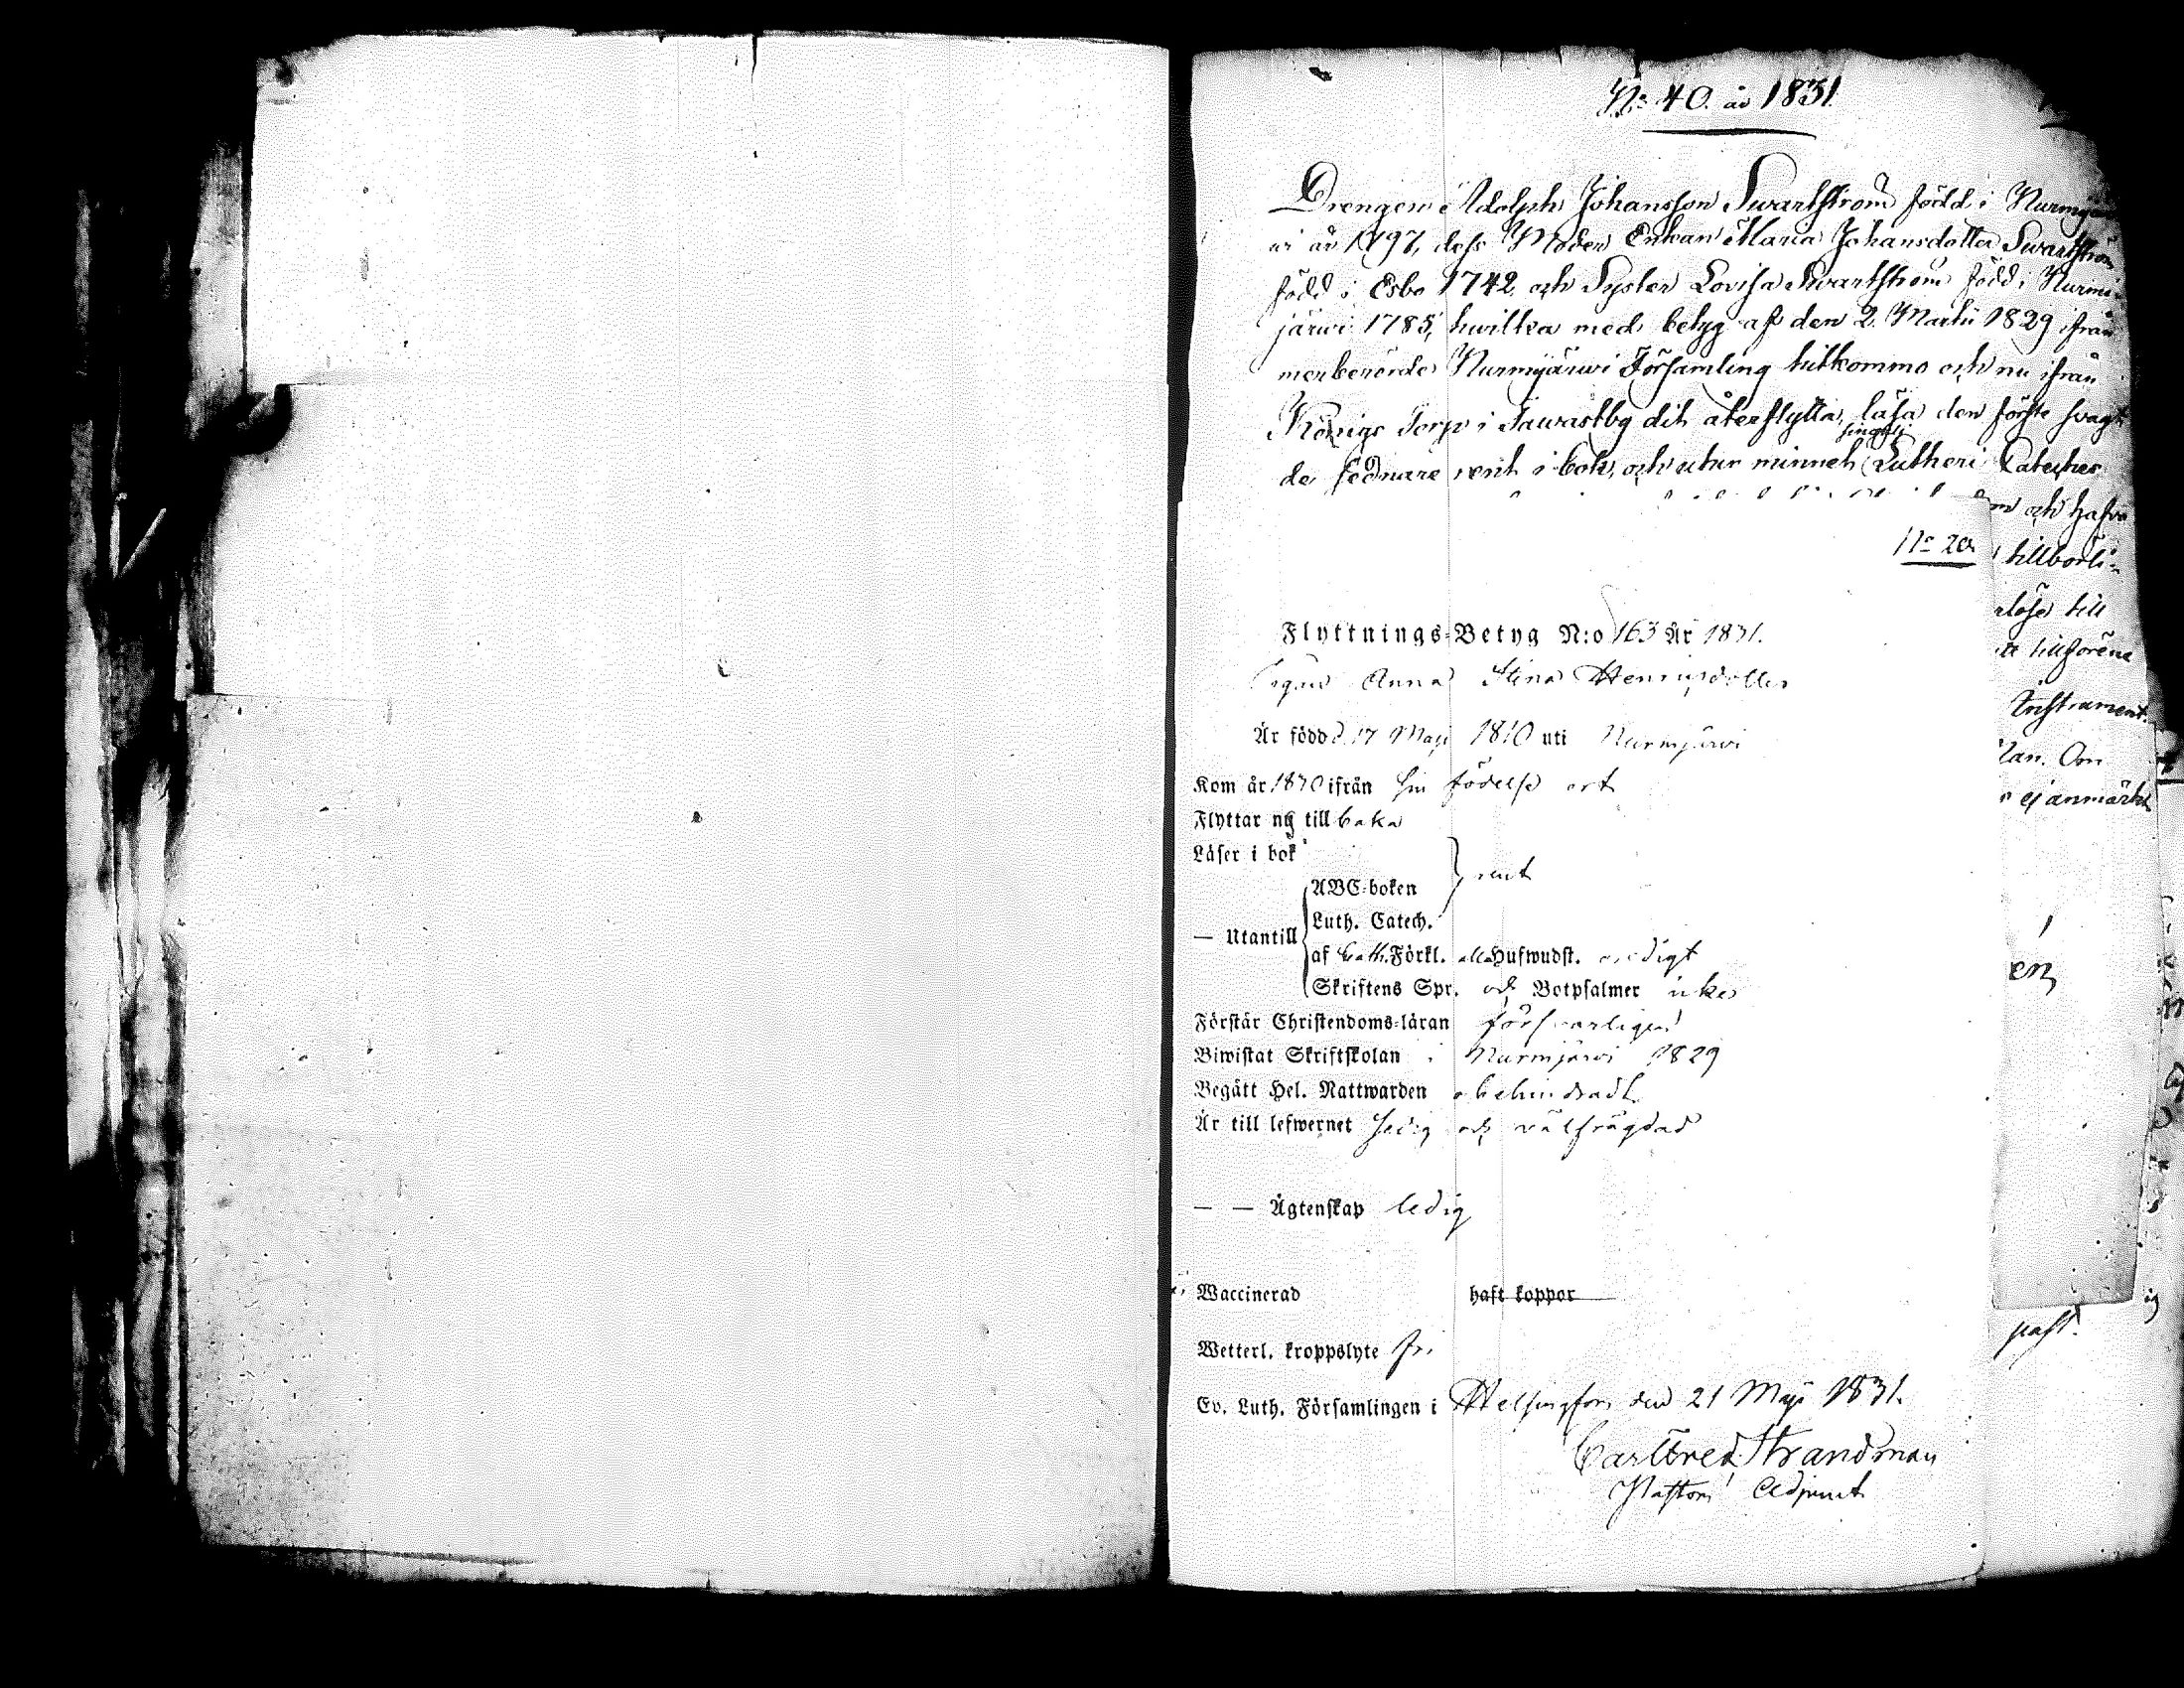 No 40. år 1831.
Drengen Adolph Johansson Swartström född i Nurmijär
wi år 1797, dess Moder Enkan Maria Johansdotter Swartström
född i Esbo 1742, och Syster Lovisa Swartström född i Nurmi-
järwi 1785, hwilka med betyg af den 2 Martii 1829 ifrån
merberörde Nurmijärwi Församling hitkommo och nu ifrån
Königs Torp i Tawastby dit återflytta, läsa den förste svagt
de sednare rent i bok, och utur minnet Lutheri Cateches
och hafva
No 20
tillbörli-
till
tillförene
Instrament.
Om
ej anmärkt
Flyttnings-Betyg N:o 163 År 1831.
Pigan Anna Stina Henricsdotter
Är född d. 17 Maji 1810 uti Nurmijärwi
Kom år 1830 ifrån sin födelse ort
Flyttar nu tillbaka
Läser i bok
ABC-boken } rent
Luth. Catech.
— Utantill
af Förkl. alla Hufwudst.
Skriftens Spr. och Botpsalmer icke
Förstår Christendoms-läran försvarligen
Biwistat Skriftskolan i Nurmijärwi 1829
Begått Hel. Nattwarden obehindradt
Är till lefwernet sedig och välfrägdad
— — Ägtenskap ledig
Waccinerad haft koppor
Wetterl. kroppslyte fri
past.
Ev. Luth. Församlingen i Helsingfors den 21 Maji 1831.
Carl Fred. Strandman
Pastors Adjunct